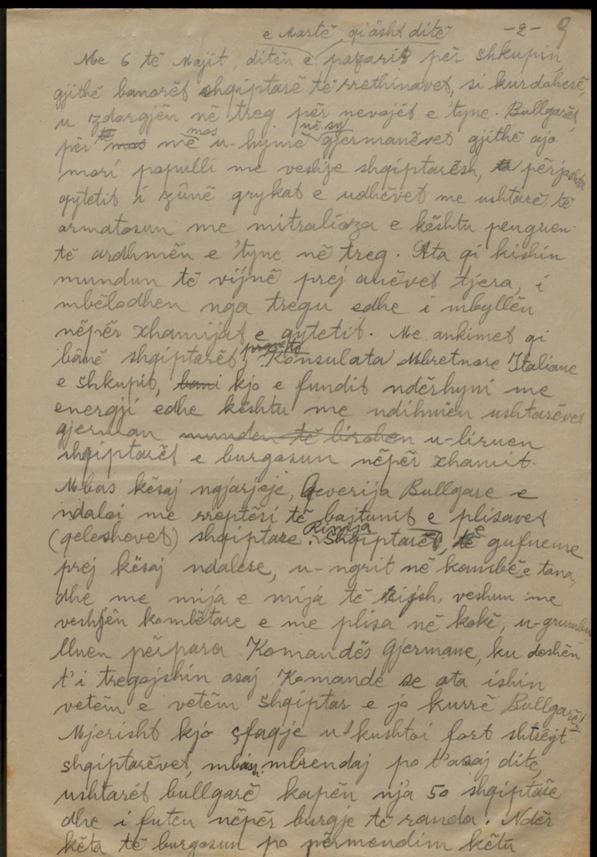 e Martë qi âsht ditë -2- 9
Me 6 të Majit, ditën e pazarit për Shkupin,
gjithë banorët shqiptarë të rrethinavet, si kurdoherë,
u zdorgjën në treg për nevojët e tyne. Bullgarët,
për të mos më u-hymë në sy gjermanëvet gjithë ajo
mori populli me veshje shqiptarësh,
qytetit i zûnë grykat e udhëvet me ushtarë të
armatosun me mitralioza e kështu penguen
të ardhmën e tyne në treg. Ata qi kishin
mundun të vijnë prej anëvet tjera, i
mbëlodhen nga tregu edhe i mbyllën
nëpër xhamijat e qytetit. Me ankimet qi
bânë shqiptarët pranë Konsulata Mbretnore Italiane
e Shkupit, kjo e fundit ndërhyni me
energji edhe kështu me ndihmën ushtarëvet
gjerman munden të lirohen u-liruen
shqiptarët e burgosun nëpër xhamit.
Mbas kësaj ngjarjeje, Qeverija Bullgare e
ndaloi me rreptësi të bajtunit e plisavet
(qeleshevet) shqiptare. Rinija Shqiptare, e gufueme
prej kësaj ndalese, u-ngrit në kambë e tana,
dhe me mija e mija të rijsh, veshun me
veshjën kombëtare e me plisa në kokë, u-grumbu
lluen përpara Komandës Gjermane, ku doshën
t'i tregojshin asaj Komande se ata ishin
vetëm e vetëm Shqiptar e jo kurrë Bullgarë,
Mjerisht kjo sfaqje u kushtoi fort shtrêjt
shqiptarëvet, mbasi, mbrendaj po t'asaj dite,
ushtarët bullgarë kapën nja 50 shqiptarë
dhe i futen nëpër burgje të randa. Ndër
këta të burgosun po përmendim këtu